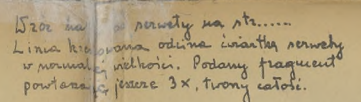 Wzór na serwety na str......
Linia kreskowana odcina ćwiartkę serwety
w normalnej wielkości. Podany fragment
powtarzać jeszcze 3x, tworzy całość.